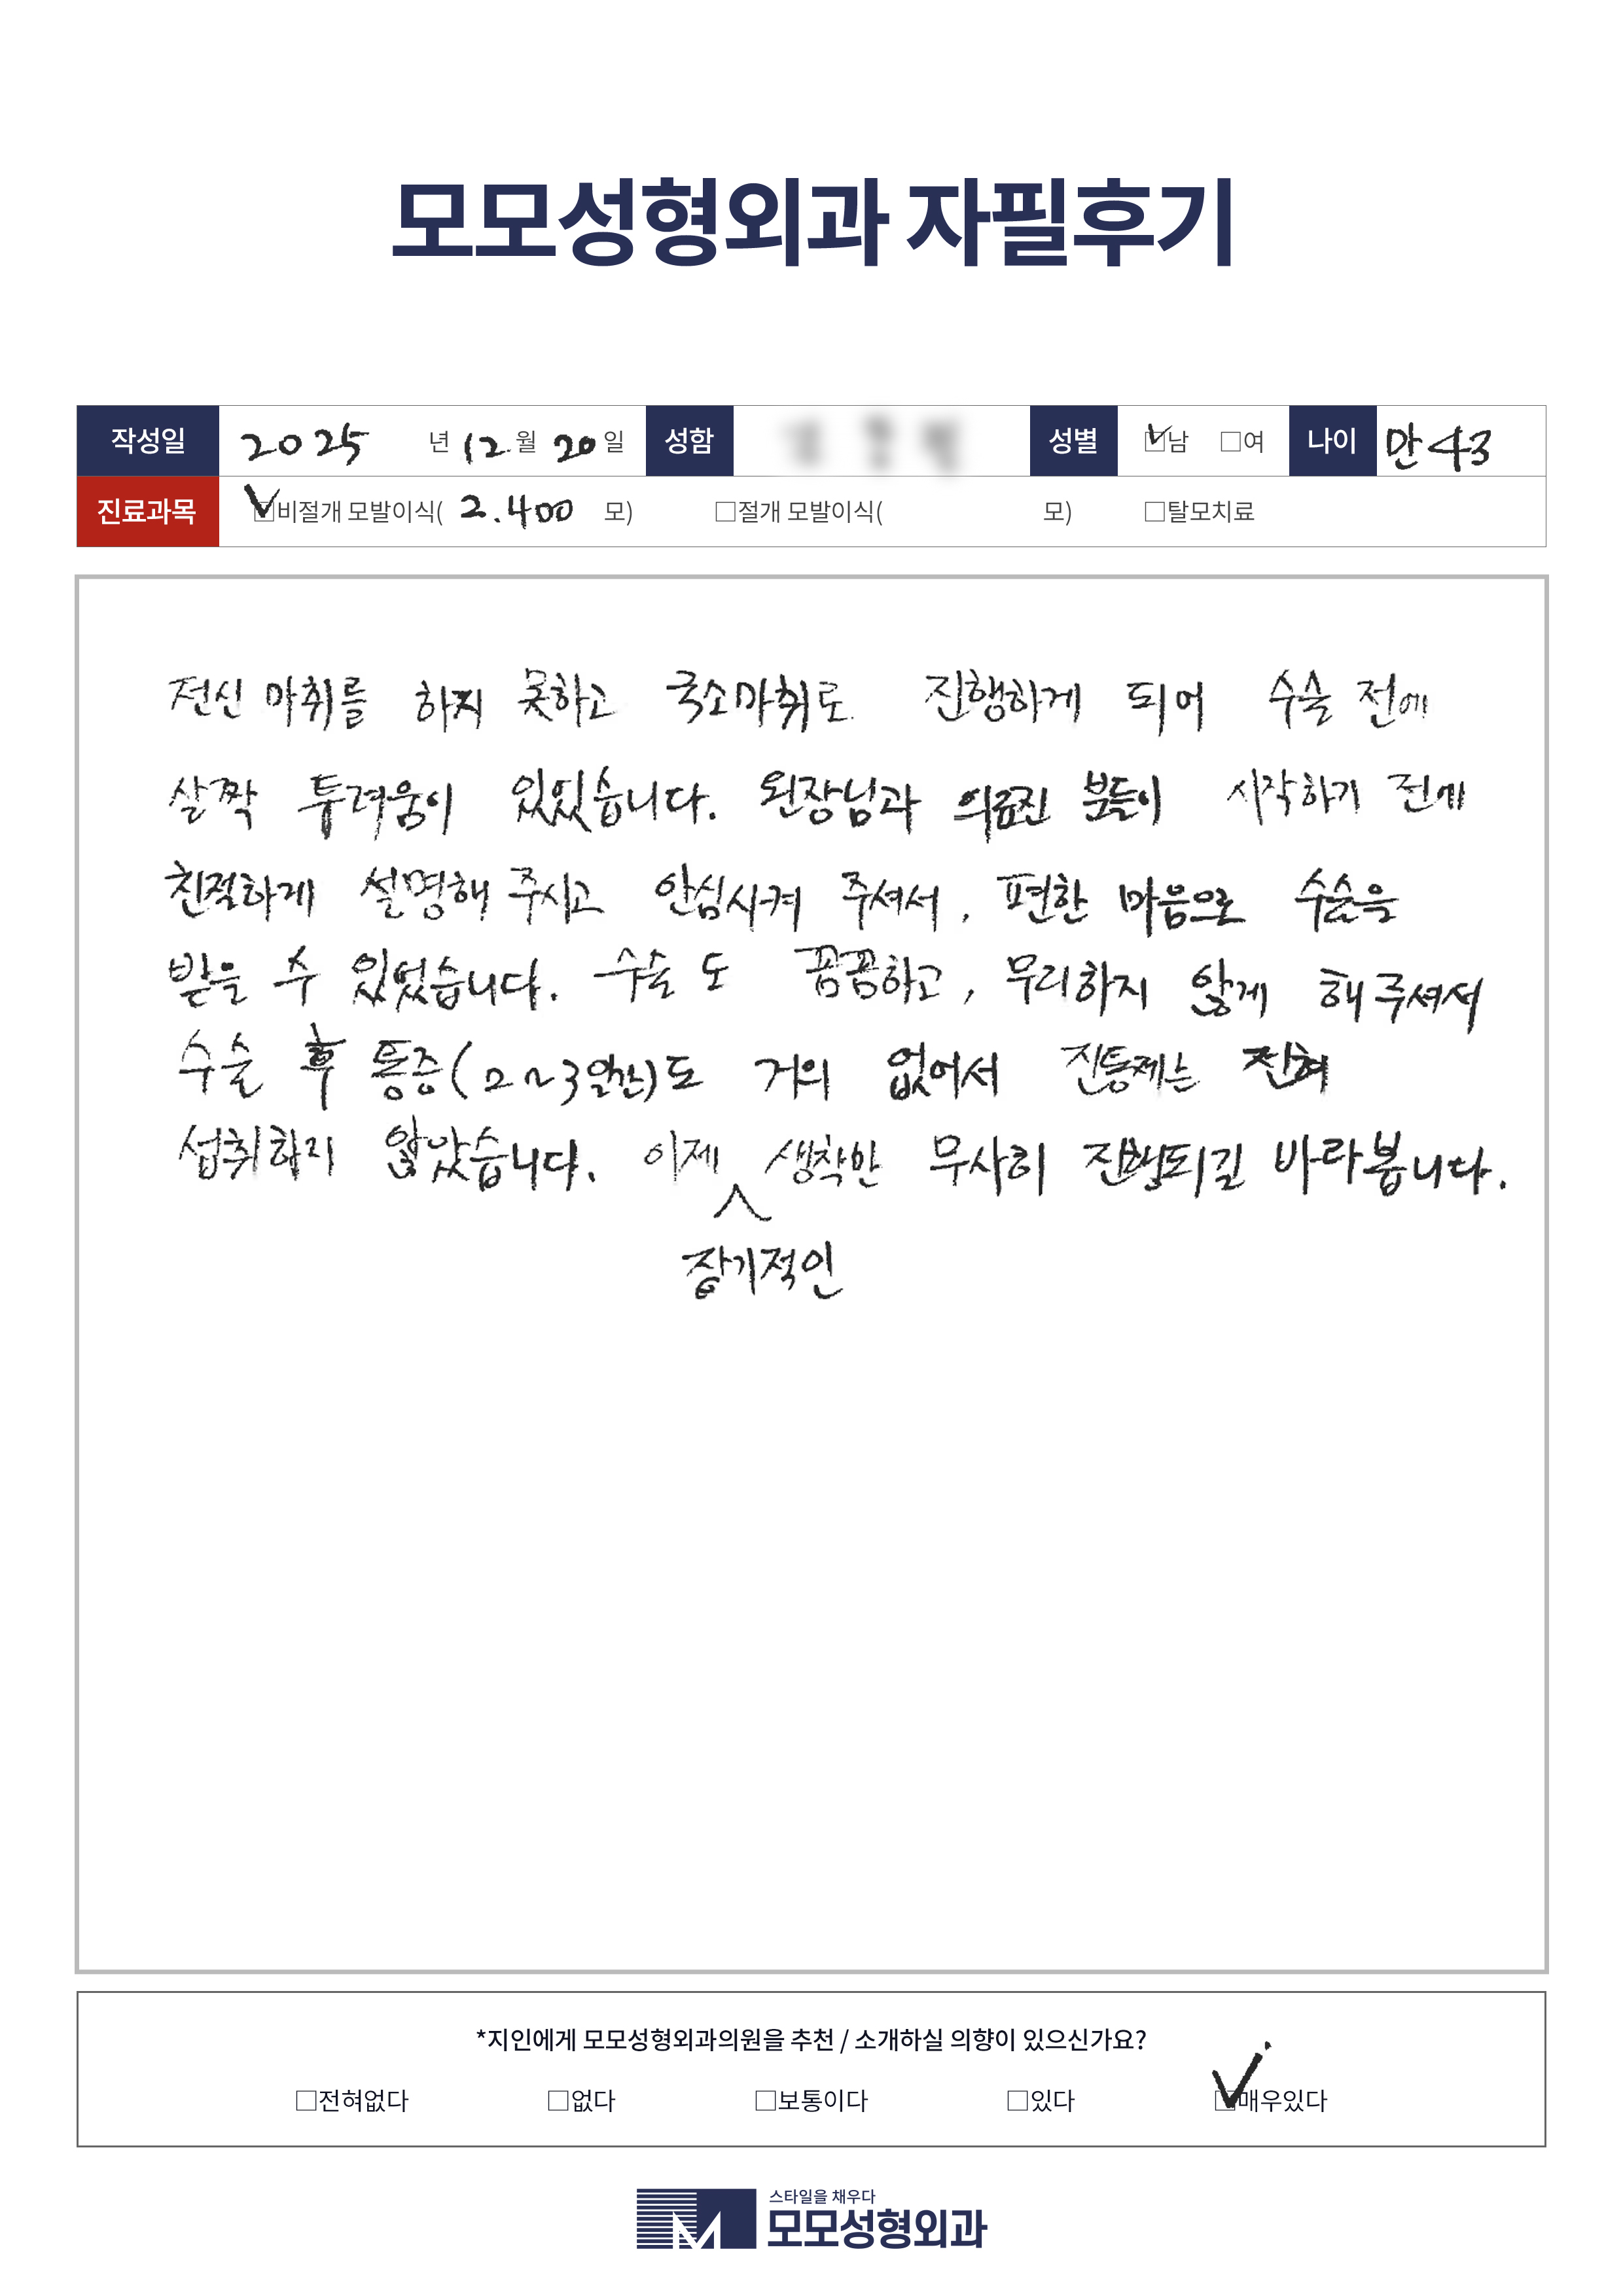 모모성형외과 자필후기
작성일 2025 년 12. 월 20 일 성함 성별 ☑남 □여 나이 만 43
진료과목 ☑비절개 모발이식( 2.400 모) □절개 모발이식( 모) □탈모치료
전신 마취를 하지 못하고 국소마취로 진행하게 되어 수술 전에
살짝 두려움이 있있습니다. 원장님과 의료진 분들이 시작하기 전에
친절하게 설명해 주시고 안심시켜 주셔서, 편한 마음으로 수술을
받을 수 있었습니다. 수술도 꼼꼼하고, 무리하지 않게 해주셔서
수술 후 통증(2~3일간)도 거의 없어서 진통제는 전혀
섭취하지 않았습니다. 이제 생착만 무사히 진행되길 바라봅니다.
장기적인
*지인에게 모모성형외과의원을 추천 / 소개하실 의향이 있으신가요?
□전혀없다 □없다 □보통이다 □있다 ☑매우있다
스타일을 채우다
모모성형외과